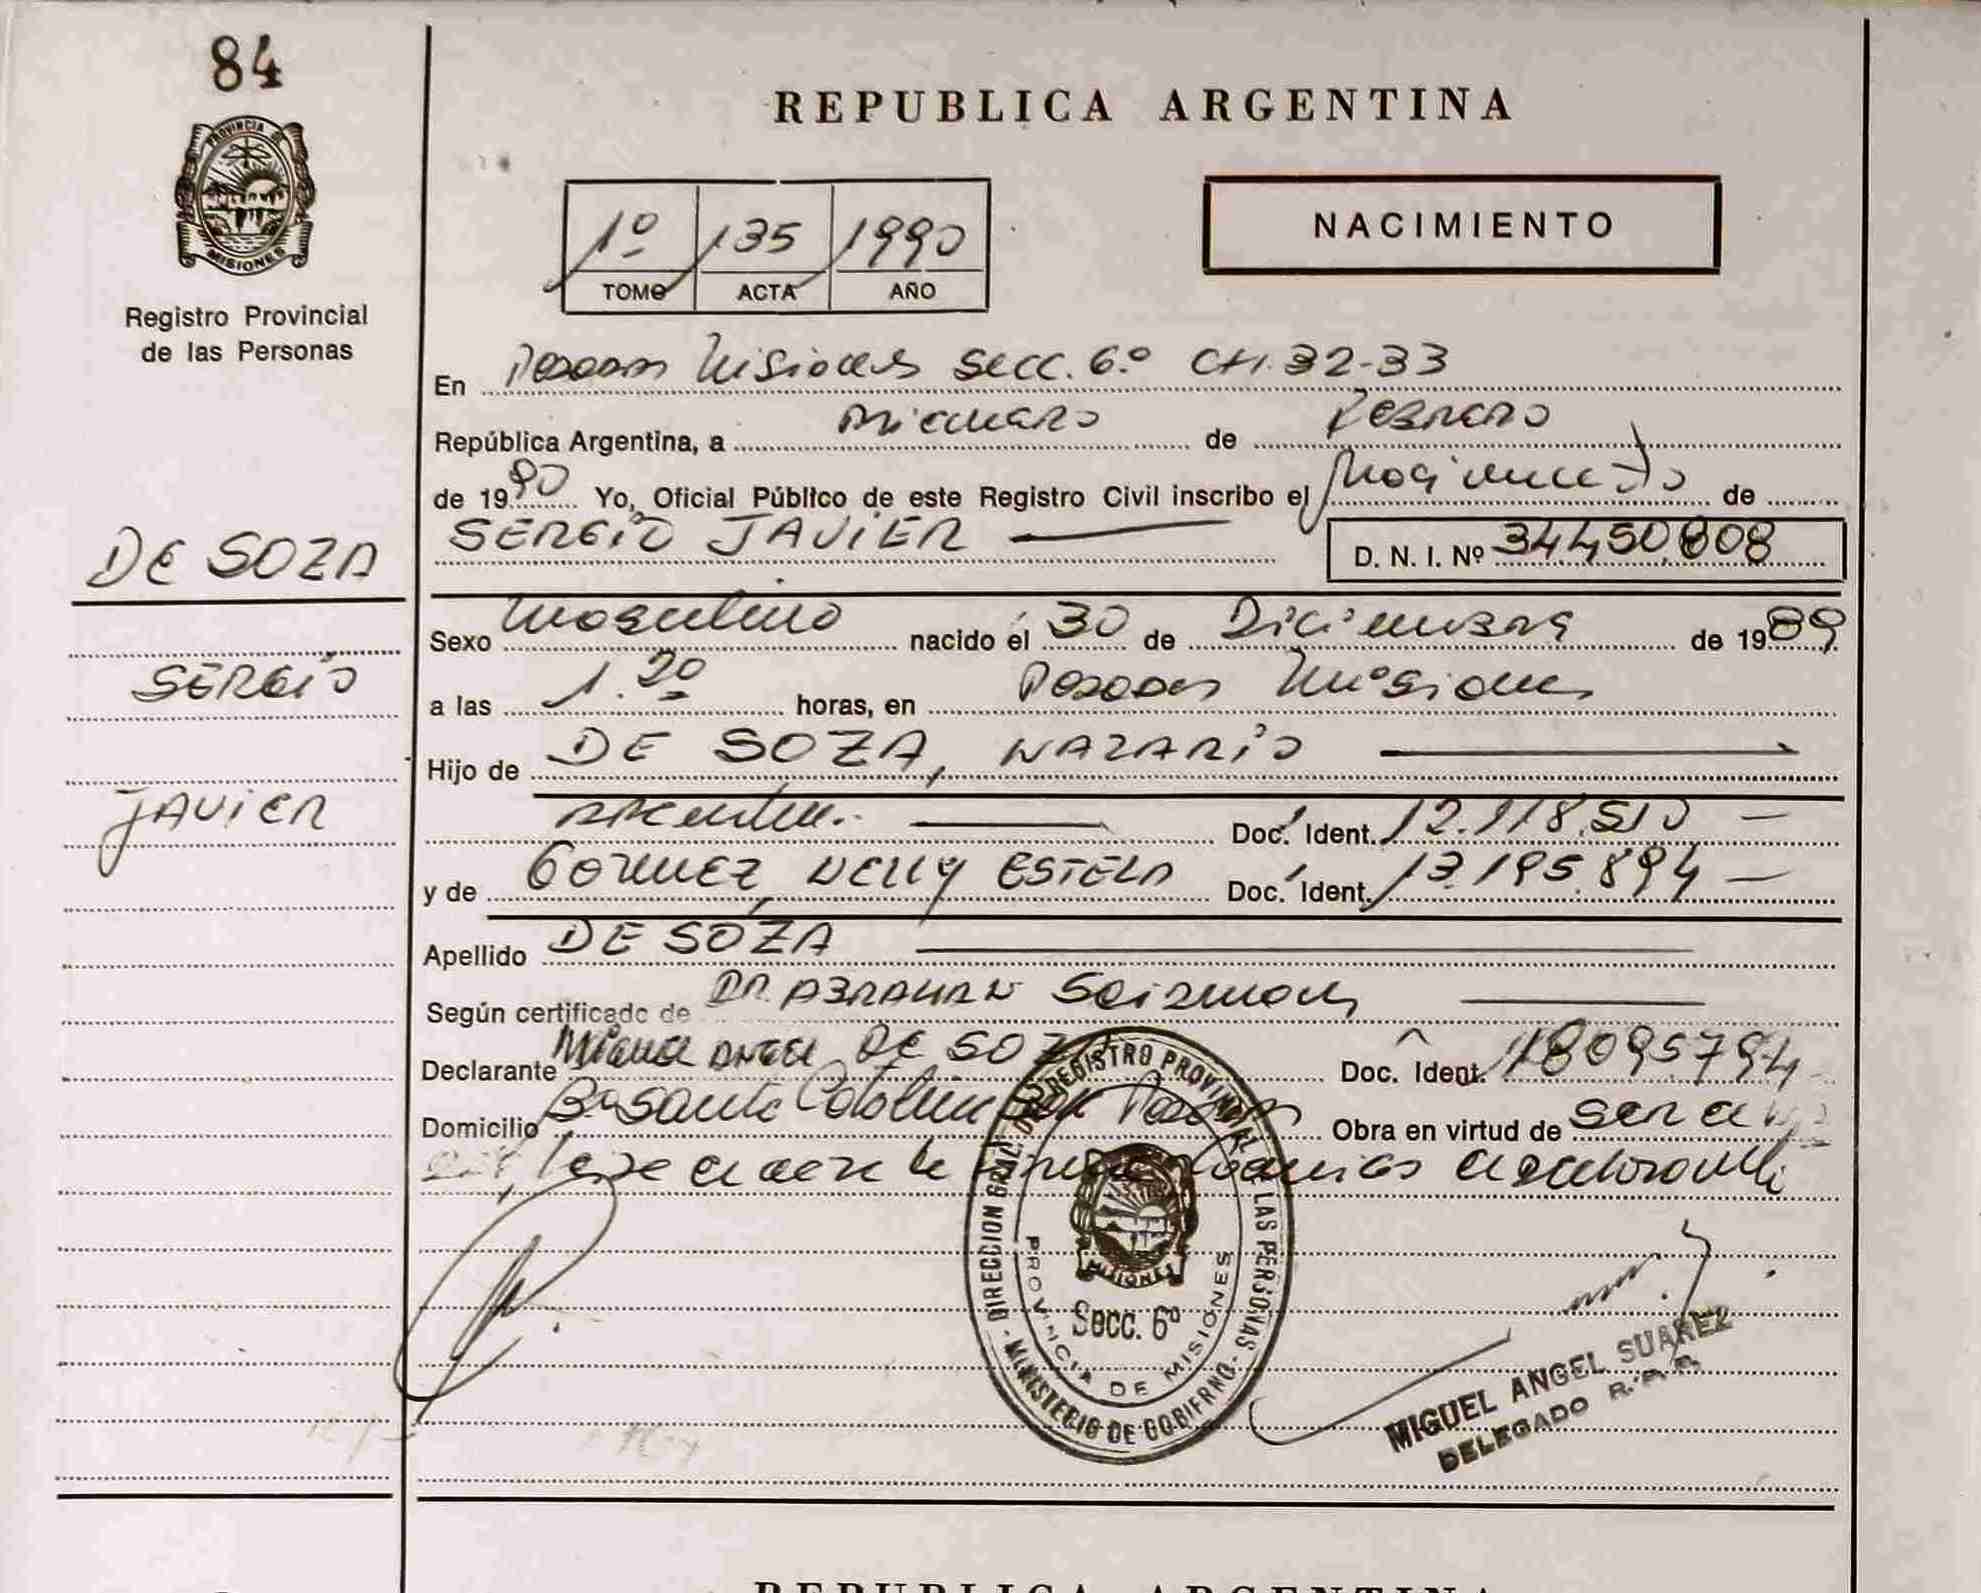 84
PROVINCIA DE
MISIONES
Registro Provincial
de las Personas
REPUBLICA ARGENTINA
1º 135 1990
TOMO ACTA AÑO
NACIMIENTO
En Posadas Misiones Secc. 6.º CH. 32-33
República Argentina, a de Febrero
de 1990 Yo, Oficial Público de este Registro Civil inscribo el Nacimiento de
SERGIO JAVIER D. N. I. Nº 34450.808
DE SOZA
SERGIO
JAVIER
Sexo Masculino nacido el 30 de Diciembre de 1989
a las 1.20 horas, en Posadas Misiones
Hijo de DE SOZA, NAZARIO
Argentino. Doc. Ident. 12.118.510
y de GOMEZ, NELLY ESTELA Doc. Ident. 13.195.894
Apellido DE SOZA
Según certificado de DR. ABRAHAN
Declarante MIGUEL ANGEL DE SOZA Doc. Ident. 18095794
Domicilio Bº Santa Posadas Obra en virtud de ser
lee el acta la firma el declarante
DIRECCION GRAL. DEL REGISTRO PROVINCIAL DE LAS PERSONAS
MINISTERIO DE GOBIERNO
MISIONES
Secc. 6º
PROVINCIA DE MISIONES
MIGUEL ANGEL SUAREZ
DELEGADO R. P. P.
REPUBLICA ARGENTINA